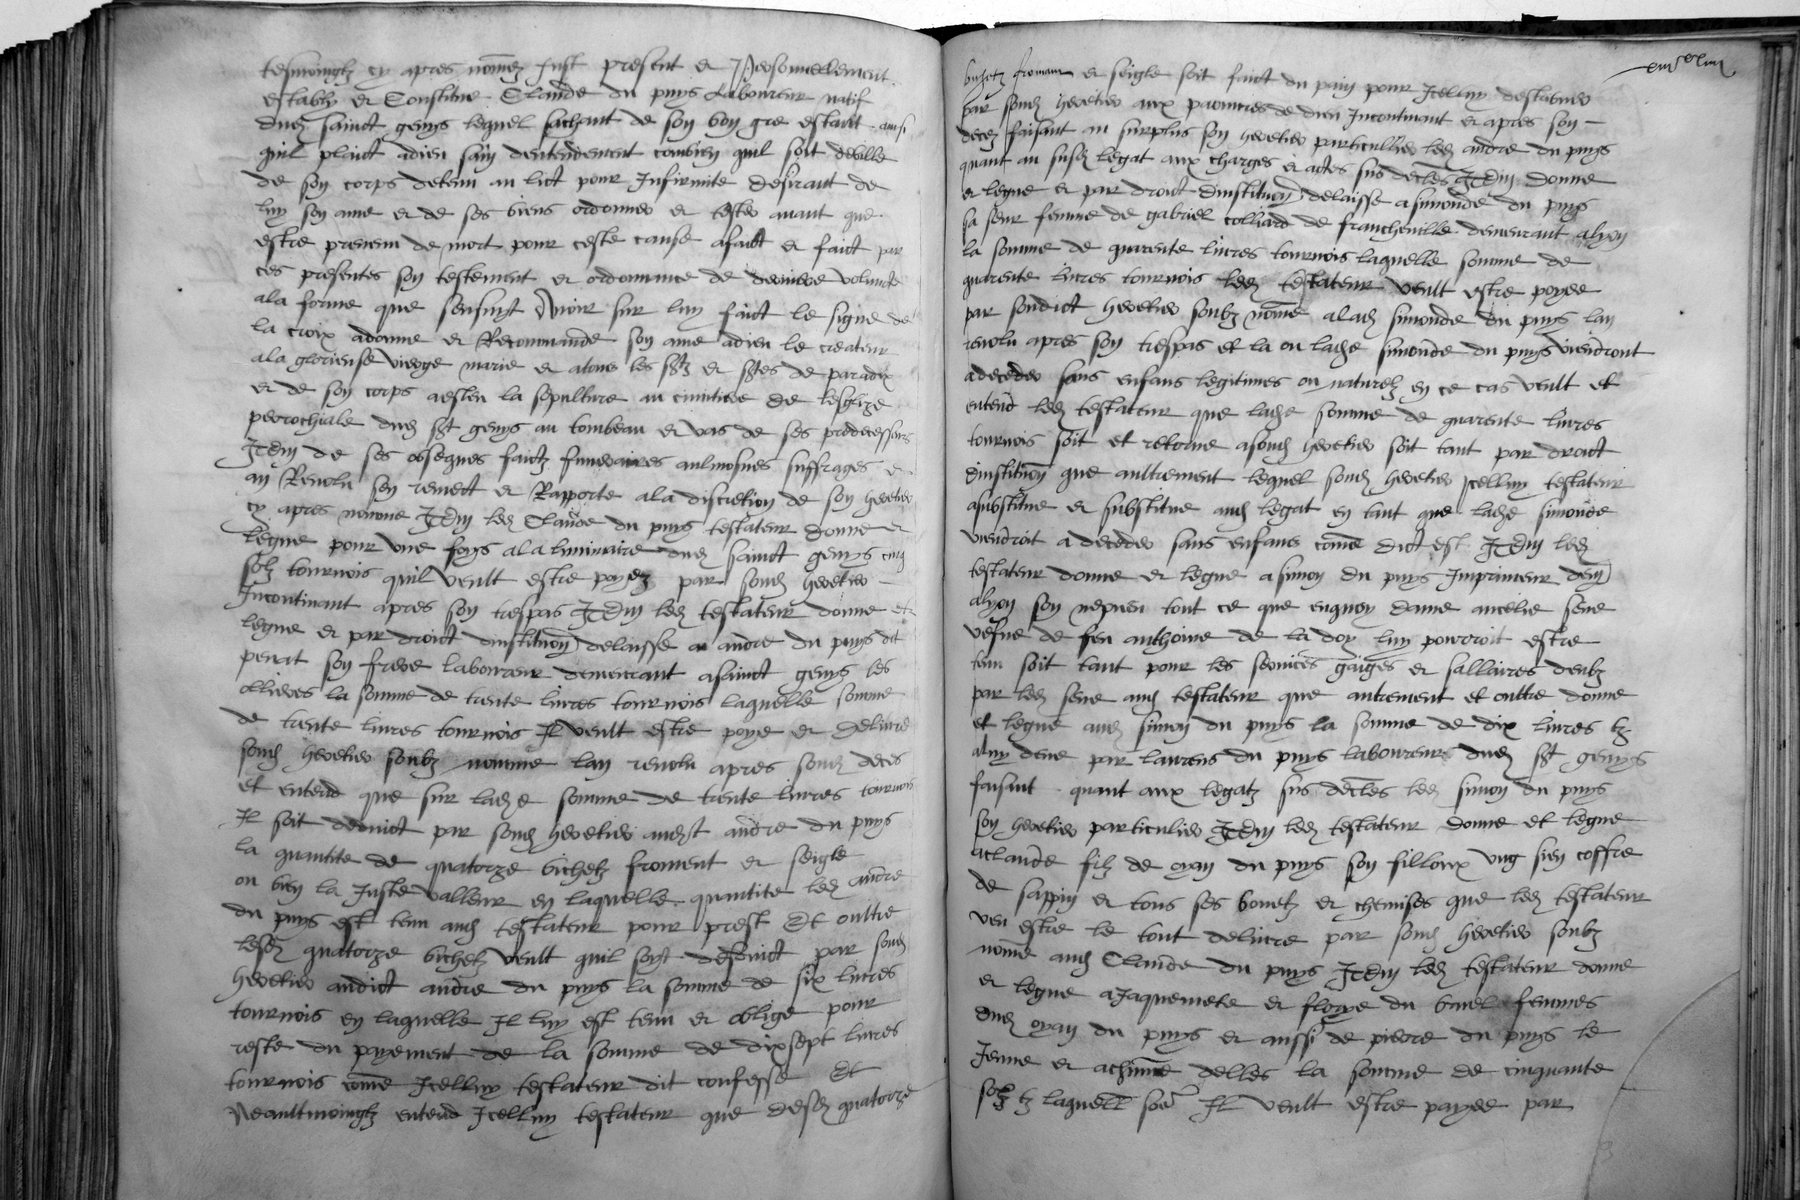 tesmoingtz cy apres nommez fust present et personnellement
estably et constitue Claude du puys laboureur natif
dud sainct genys lequel sachant de son bon gre estant ainsi
quil plaict a dieu sain dentendement combien quil soit debille
de son corps detenu au lict pour Infirmite desirant de
luy son ame et de ses biens ordonner et tester avant que
estre prevenu de mort pour ceste cause a faict et faict par
ces presentes son testement et ordonnance de derniere volunte
a la forme que sensuyt Avoir sur luy faict le signe de
la croix a donne et Recommande son ame a dieu le createur
a la glorieuse vierge marie et a tous les stz et stes de paradix
et de son corps a esleu la sepulture au cimitiere de lesglize
perrochiale dud st genys au tombeau et vas de ses predecesseurs
Item de ses obseques faictz funeraires aulmosnes suffrages et
an Revolu sen remect et Rapporte a la discretion de son heretier
cy apres nomme Item led Claude du puys testateur donne et
legue pour une foys a la liminaire dud sainct genys cinq
solz tournois quil veult estre payez par soud heretier
Incontinant apres son trespas Item led testateur donne et
legue et par droict dinstitution delaisse a andre du puys dit
penet son frere laboureur demeurant a sainct genys les
ollieres la somme de trente livres tournois laquelle somme
de trente livres tournois Il veult estre paye et delivre
soud heretier soubz nomme lan revolu apres soud deces
et entend que sur lad somme de trente livres tournois
Il soit deduict par soud heretier aud andre du puys
la quantite de quatorze bichetz froment et seigle
ou bien la Juste valleur en laquelle quantite led andre
du puys est tenu aud testateur pour prest Et oultre
lesd quatorze bichetz veult quil soyt deduict par soud
heretier audict andre du puys la somme de six livres
tournois en laquelle Il luy est tenu et oblige pour
reste du payement de la somme de dixsept livres
tournois comme Icelluy testateur dit confesse Et
Neaultmoingtz entend Icelluy testateur que desd quatorze
bichetz froment et seigle soit faict du pain pour Icelluy destribuer
par soud heretier aux pauvres de dieu Incontinant et apres son
deces faisant au surplus son heretier particullier led andre du puys
quant au susd legat aux charges et actes sus declers Item donne
et legue et par droict dinstitution delaisse a simonde du puys
sa seur femme de gabriel colliard de francheville demeurant a lyon
la somme de quarente livres tournois laquelle somme de
quarente livres tournois led testateur veult estre payee
par sondict heretier soubz nomme a lad simonde du puys lan
revolu apres son trespas et la ou lad simonde du puys viendront
a deceder sans enfans legitimes ou naturelz en ce cas veult et
entend led testateur que lad somme de quarente livres
tournois soit et retorne a soud heretier soit tant par droict
dinstitution que aultrement lequel soud heretier Icelluy testateur
a substitue et substitue aud legat en tant que lad simonde
viendroit a deceder sans enfans comme dict est Item led
testateur donne et legue a simon du puys Imprimeur dem
a lyon son nepveu tout ce que dame ancelie sene
vefve de feu anthoine de la doy luy pourroit estre
tenu soit tant pour les services gaiges et sallaires deubz
par led sene aud testateur que autrement et oultre donne
et legue aud simon du puys la somme de dix livres tz
a luy deue par laurens du puys laboureur dud st genys
faisant quant aux legatz sus declers led simon du puys
son heretier particulier Item led testateur donne et legue
a claude filz de oyan du puys son filloux ung sien coffre
de sappin et tous ses bonetz et chemises que led testateur
veu estre le tout delivre par soud heretier soubz
nomme aud Claude du puys Item led testateur donne
et legue a Jaquemete et florye du femmes
dud oyan du puys et aussi de pierre du puys le
Jeune et a chune delles la somme de cinquante
solz tz laquelle some Il veult estre payee par